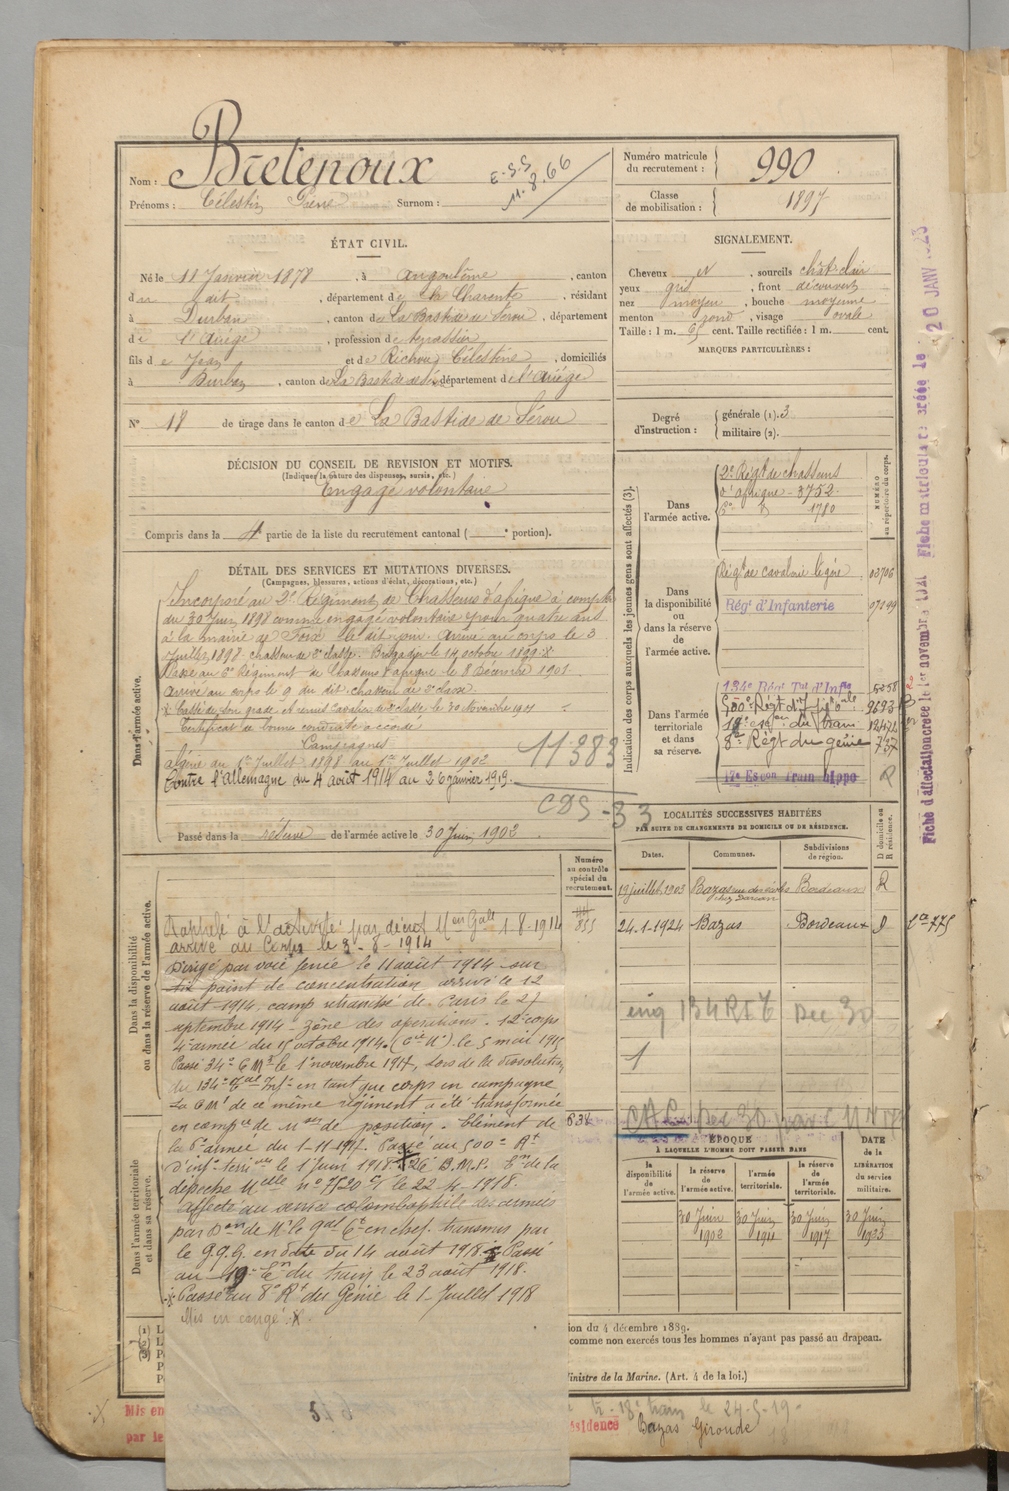 Nom : Bretenoux
Prénoms : Célestin Pierre Surnom :
E.S.S
11.8.66
Numéro matricule
du recrutement : 990
Classe
de mobilisation : 1897
ÉTAT CIVIL.
Né le 11 Janvier 1878, à Angoulême, canton
du dit, département de la Charente, résidant
à Durban, canton de La Bastide de Sérou, département
de l'Ariège, profession de terrassier
fils de Jean et de Richou Célestine, domiciliés
à Durban, canton de La Bastide de Sérou département de l'Ariège
N° 18 de tirage dans le canton de La Bastide de Sérou
SIGNALEMENT.
Cheveux N, sourcils chât-clair
yeux gris, front découvert
nez moyen, bouche moyenne
menton rond, visage ovale
Taille : 1 m. 65 cent. Taille rectifiée : 1 m. cent.
MARQUES PARTICULIÈRES :
Degré
d'instruction :
générale (1). 3
militaire (2).
DÉCISION DU CONSEIL DE REVISION ET MOTIFS.
(Indiquer la nature des dispenses, sursis, etc.)
Engagé volontaire
Compris dans la 4e partie de la liste du recrutement cantonal ( e portion).
DÉTAIL DES SERVICES ET MUTATIONS DIVERSES.
(Campagnes, blessures, actions d'éclat, décorations, etc.)
Dans l'armée active.
Incorporé au 2e Régiment de Chasseurs d'afrique à compter
du 30 Juin 1898 comme engagé volontaire pour quatre ans
à la mairie de Foix le dit jour. Arrivé au corps le 3
Juillet 1898 chasseur de 2e classe. Brigadier le 14 octobre 1899 X
Passé au 5e Régiment de Chasseurs d'afrique le 8 Décembre 1901
arrivé au corps le 9 du dit chasseur de 2e classe
X Cassé de son grade et remis Cavalier de 2e classe le 30 Novembre 1901
Certificat de bonne conduite accordé
Campagnes
Algérie du 1er Juillet 1898 au 1er Juillet 1902
Contre l'Allemagne du 4 août 1914 au 26 janvier 1919.
11383
CDS-33
Passé dans la réserve de l'armée active le 30 Juin 1902.
Indication des corps auxquels les jeunes gens sont affectés (3).
NUMÉRO
au répertoire du corps.
Dans
l'armée active.
2e Régt de chasseurs
d'afrique - 3752.
5e d° 1780
Dans
la disponibilité
ou
dans la réserve
de
l'armée active.
Régt de cavalerie légère 03706
Régt d'Infanterie 07199
Dans l'armée
territoriale
et dans
sa réserve.
134e Régt Tal d'Infie 5058
500e Régt d'Inf. 9693
du train
8e Régt du génie 757
17e Escon Train hippo R
Fiche d'affectation créée le 1er novembre 1921 Fiche matriculaire créée le 20 JANV 1923
LOCALITÉS SUCCESSIVES HABITÉES
PAR SUITE DE CHANGEMENTS DE DOMICILE OU DE RÉSIDENCE.
Dates.
Communes.
Subdivisions
de région.
D domicile ou
R résidence.
19 juillet 1903 Bazas Bordeaux R
24-1-1924 Bazas Bordeaux D
Numéro
au contrôle
spécial du
recrutement.
855
638
Dans la disponibilité
ou dans la réserve de l'armée active.
Rappelé à l'activité par décret Mon Gale 1-8-1914
arrivé au Corps le 3-8-1914
Dirigé par voie ferrée le 11 août 1914 sur
point de concentration arrivé le 12
août 1914, camp retranché de Paris le 27
septembre 1914 - Zône des opérations. 12e corps
4e armée du 15 octobre 1914. le 5 mai 1915
Passé 34e C M le 1er novembre 1917, lors de la dissolution
du 134e Tal Infie en tant que corps en campagne
La C Mt de ce même régiment a été transformée
en compie de Mses de position. Elément de
la 6e armée du 1-11-1917. Passé au 500e Rt
d'infie terriale le 1 Juin 1918 B.M.P. Con de la
dépeche Melle n° 7520 le 22-4-1918.
Affecté au centre colombophile des armées
par Don de Mr le gal Ct en chef transmis par
le G.Q.G en date du 14 août 1918. Passé
au 19e En du train le 23 août 1918.
X Passé au 8e Rt du Génie le 1 Juillet 1918
Mis en congé X
Dans l'armée territoriale
et dans sa réserve.
ÉPOQUE
À LAQUELLE L'HOMME DOIT PASSER DANS
DATE
de la
LIBÉRATION
du service
militaire.
la
disponibilité
de
l'armée active.
la réserve
de
l'armée active.
l'armée
territoriale.
la
réserve
de
l'armée
territoriale.
30 Juin
1902
30 Juin
1911
30 Juin
1917
30 Juin
1923
ion du 4 décembre 1889.
comme non exercés tous les hommes n'ayant pas passé au drapeau.
inistre de la Marine. (Art. 4 de la loi.)
Mis en
par le
train le 24-5-19
sidence Bazas Gironde